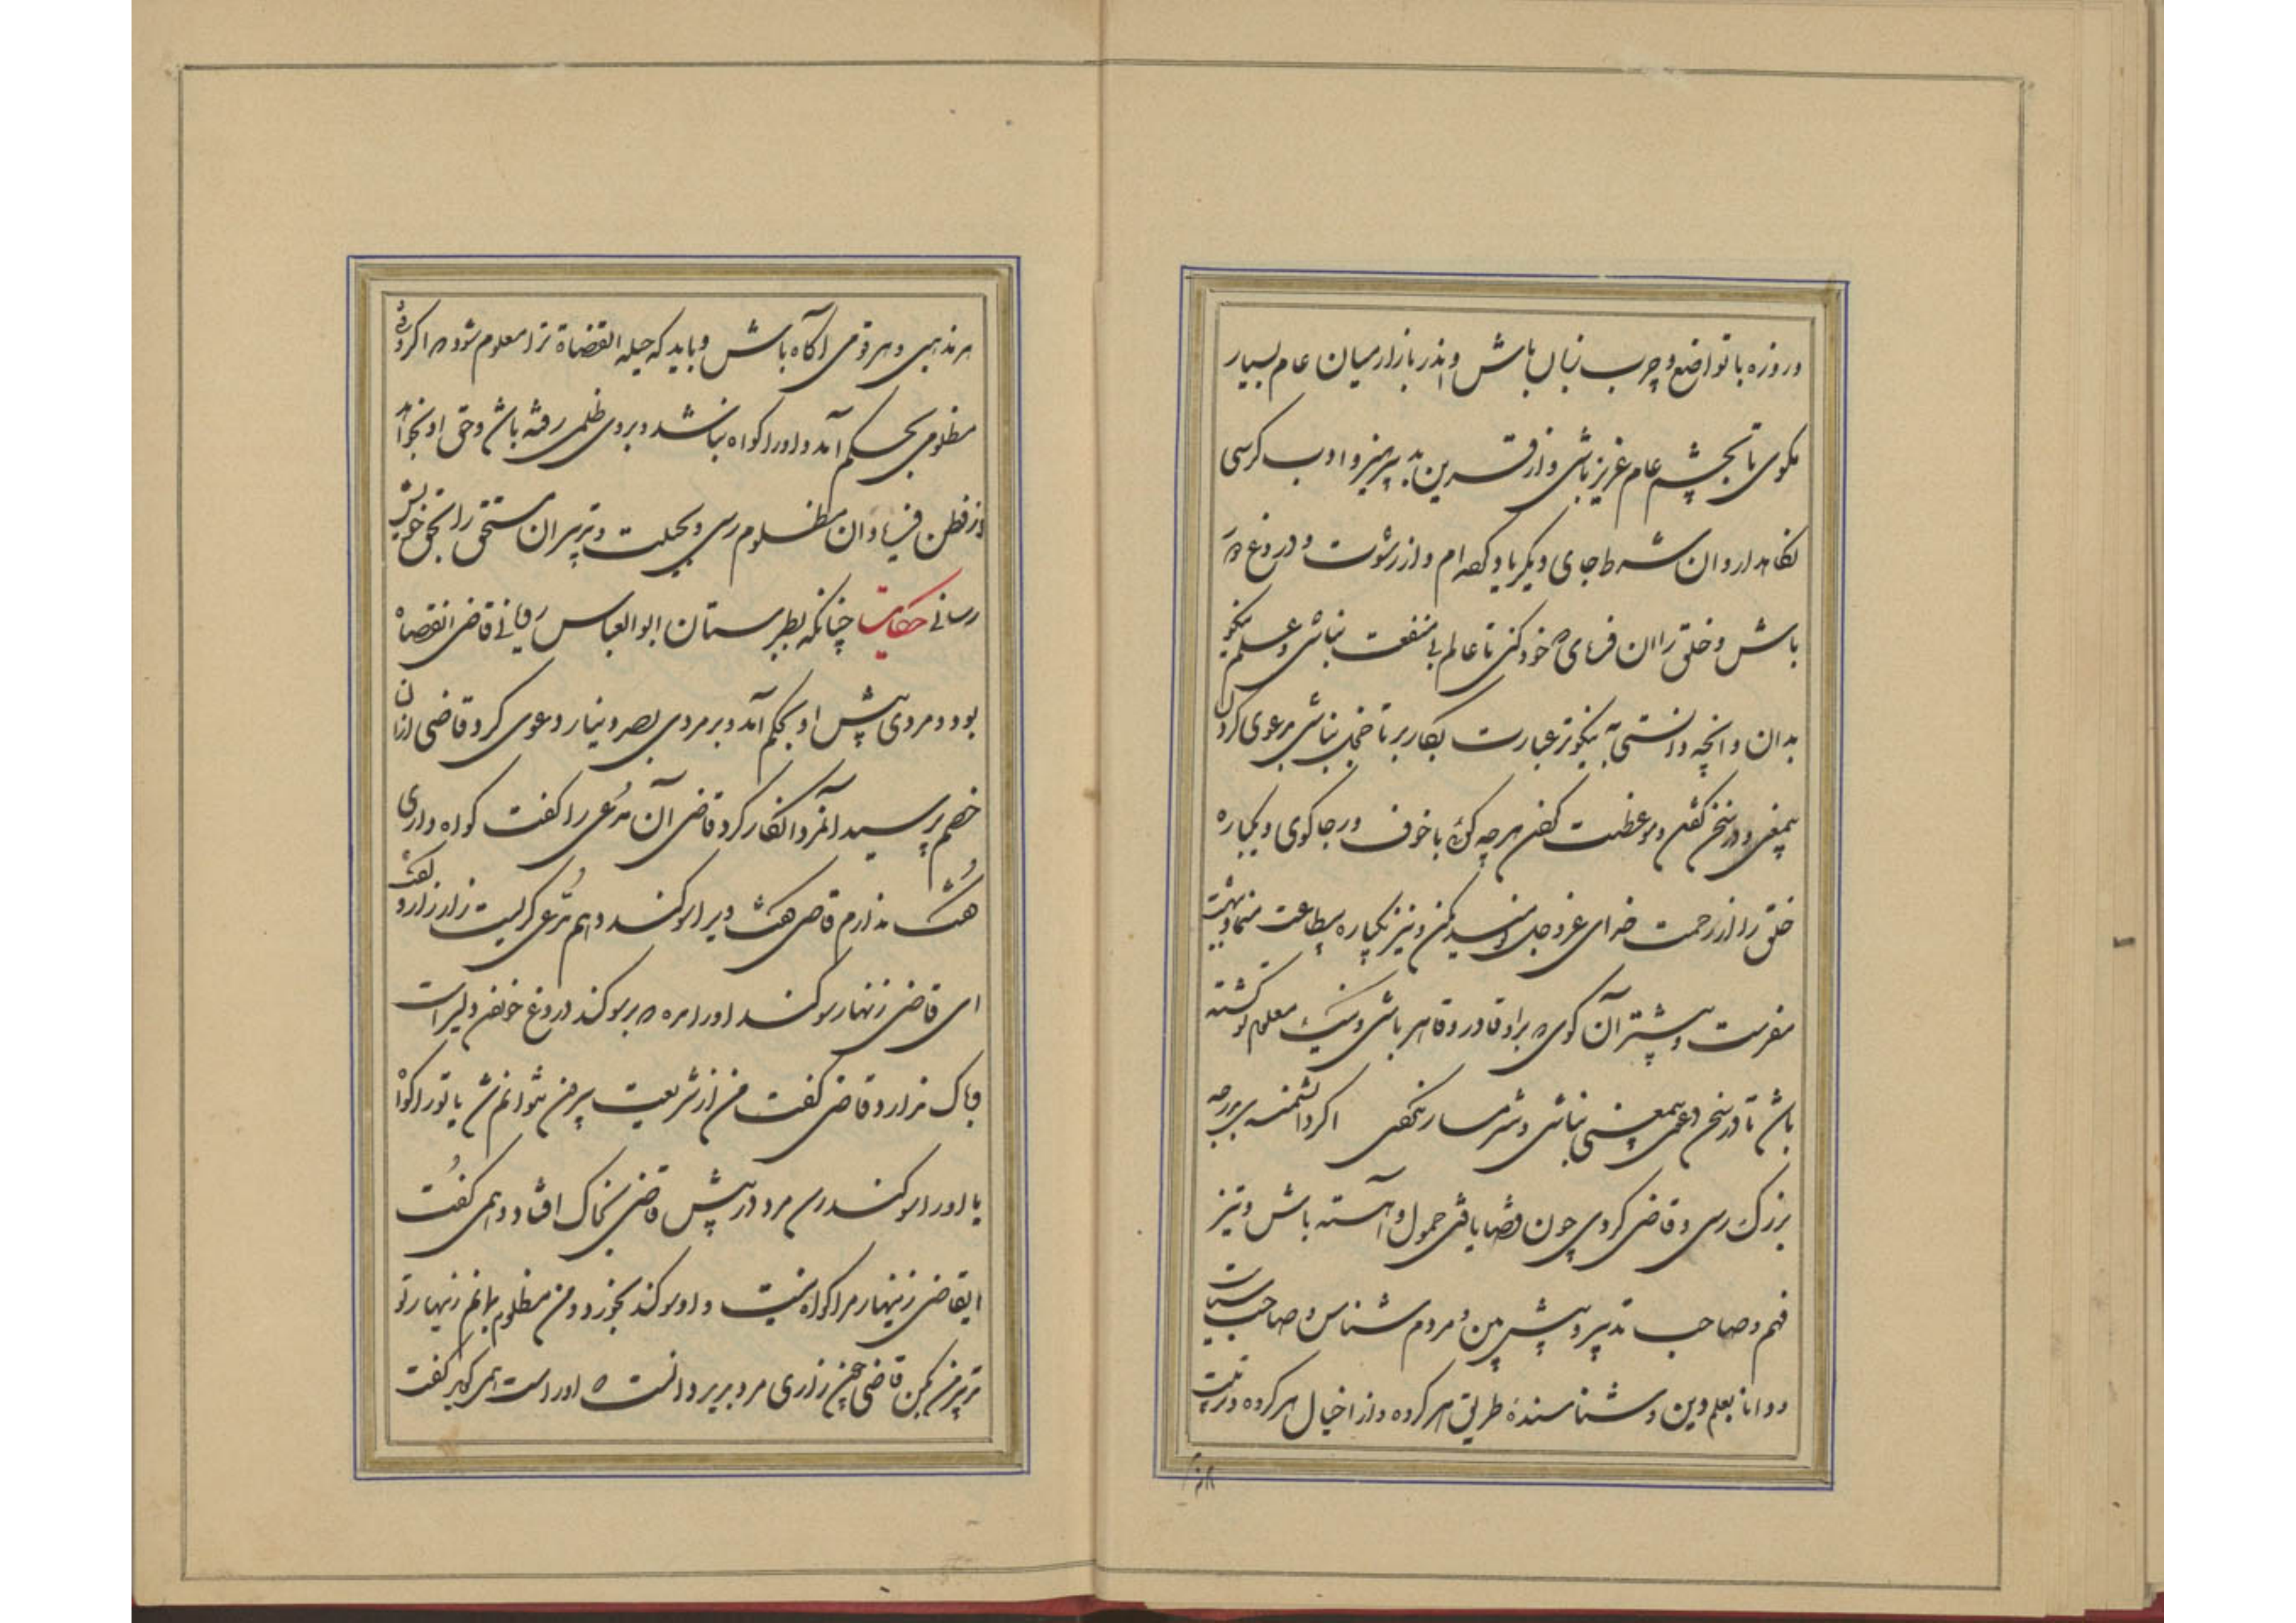 و روزه با تواضع و چرب زبان باش و اندر بازار میان عام بسیار
مکوی تا بچشم عام عزیز باشی و از قرین بد بپرهیز و ادب کرسی
نکاهدار و ان شرط جای دیکر یاد کرده ام و از رشوت و دروغ دور
باش و خلق را ان فرمای که خود کنی تا عالم بی منفعت نباشی و علم نیکو
بدان و انچه دانستی به نیکوتر عبارت بکار بر تا خجل نباشی بدعوی کردن
بیمعنی و در سخن کفتن و موعظت کفتن هرچه کوئی با خوف و رجا کوی و یکباره
خلق را از رحمت خدای عزوجل نومید مکن و نیز یکباره بیطاعت منما و ببهشت
مفرست و بیشتر آن کوی که بر او قادر و قاهر باشی و نیک معلوم تو کشته
باش تا در سخن دعوی بیمعنی نباشی و شرمساری نکشی اکر دانشمند بدرجه
بزرک رسی و قاضی کردی چون قضا یافتی حمول و آهسته باش و تیز
فهم و صاحب تدبیر و پیش بین و مردم شناس و صاحب سیاست
و دانا بعلم دین و شناسندهٔ طریق هر کروه و از احتیال هر کروه و ترتیب
هر مذهبی و هر قومی اکاه باش و باید که حیله القضاة ترا معلوم شود که اکر وقتی
مظلومی بحکم آمد و او را کواه نباشد و بر وی ظلمی رفته باشد و حق او بخواهد
از فطن فریاد ان مظلوم رسی و بحیلت و تدبیر ان مستحق را بحق خویش
رسانی حکایت چنانکه بطبرستان ابوالعباس رویانی قاضی القضاه
بود و مردی پیش او بحکم آمد و بر مردی بصد دینار دعوی کرد قاضی از ان
خصم پرسید آنمرد انکار کرد قاضی آن مدعی را کفت کواه داری
کفت ندارم قاضی کفت ویرا سوکند دهم مدعی بکریست زار زار و کفت
ای قاضی زنهار سوکند او را مده که بر سوکند دروغ خوردن دلیر است
و باک ندارد قاضی کفت من از شریعت بیرون نتوانم شد یا ترا کواه
یا او را سوکند این مرد در پیش قاضی بخاک افتاد و همی کفت
ایقاضی زینهار مرا کواه نیست و او سوکند بخورد و من مظلوم بمانم زینهار تو
تدبیر من بکن قاضی چون زاری مرد بدید دانست که او راست همی کوید کفت